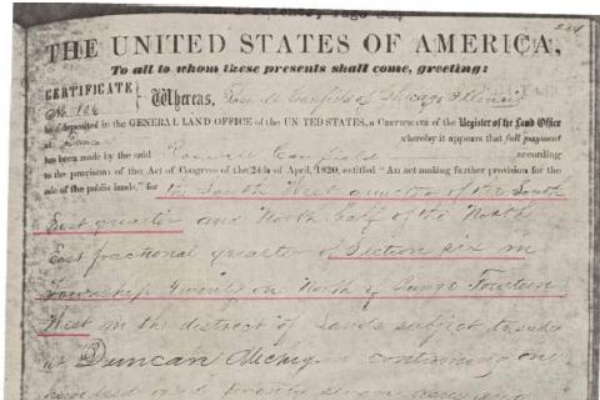 254
THE UNITED STATES OF AMERICA,
To all to whom these presents shall come, greeting:
CERTIFICATE
No. 106
Whereas, Roswell Canfield of Chicago Illinois
had deposited in the GENERAL LAND OFFICE of the UNITED STATES, a CERTIFICATE of the Register of the Land Office
at whereby it appears that full payment
has been made by the said Roswell Canfield according
to the provisions of the Act of Congress of the 24th of April, 1820, entitled "An act making further provision for the
sale of the public lands," for the South West quarter of the South
East quarter and North half of the North
East fractional quarter of Section six in
Township Twenty one North of Range Fourteen
West in the district of Lands subject to sale
at Duncan Michigan containing one
hundred and twenty seven acres and